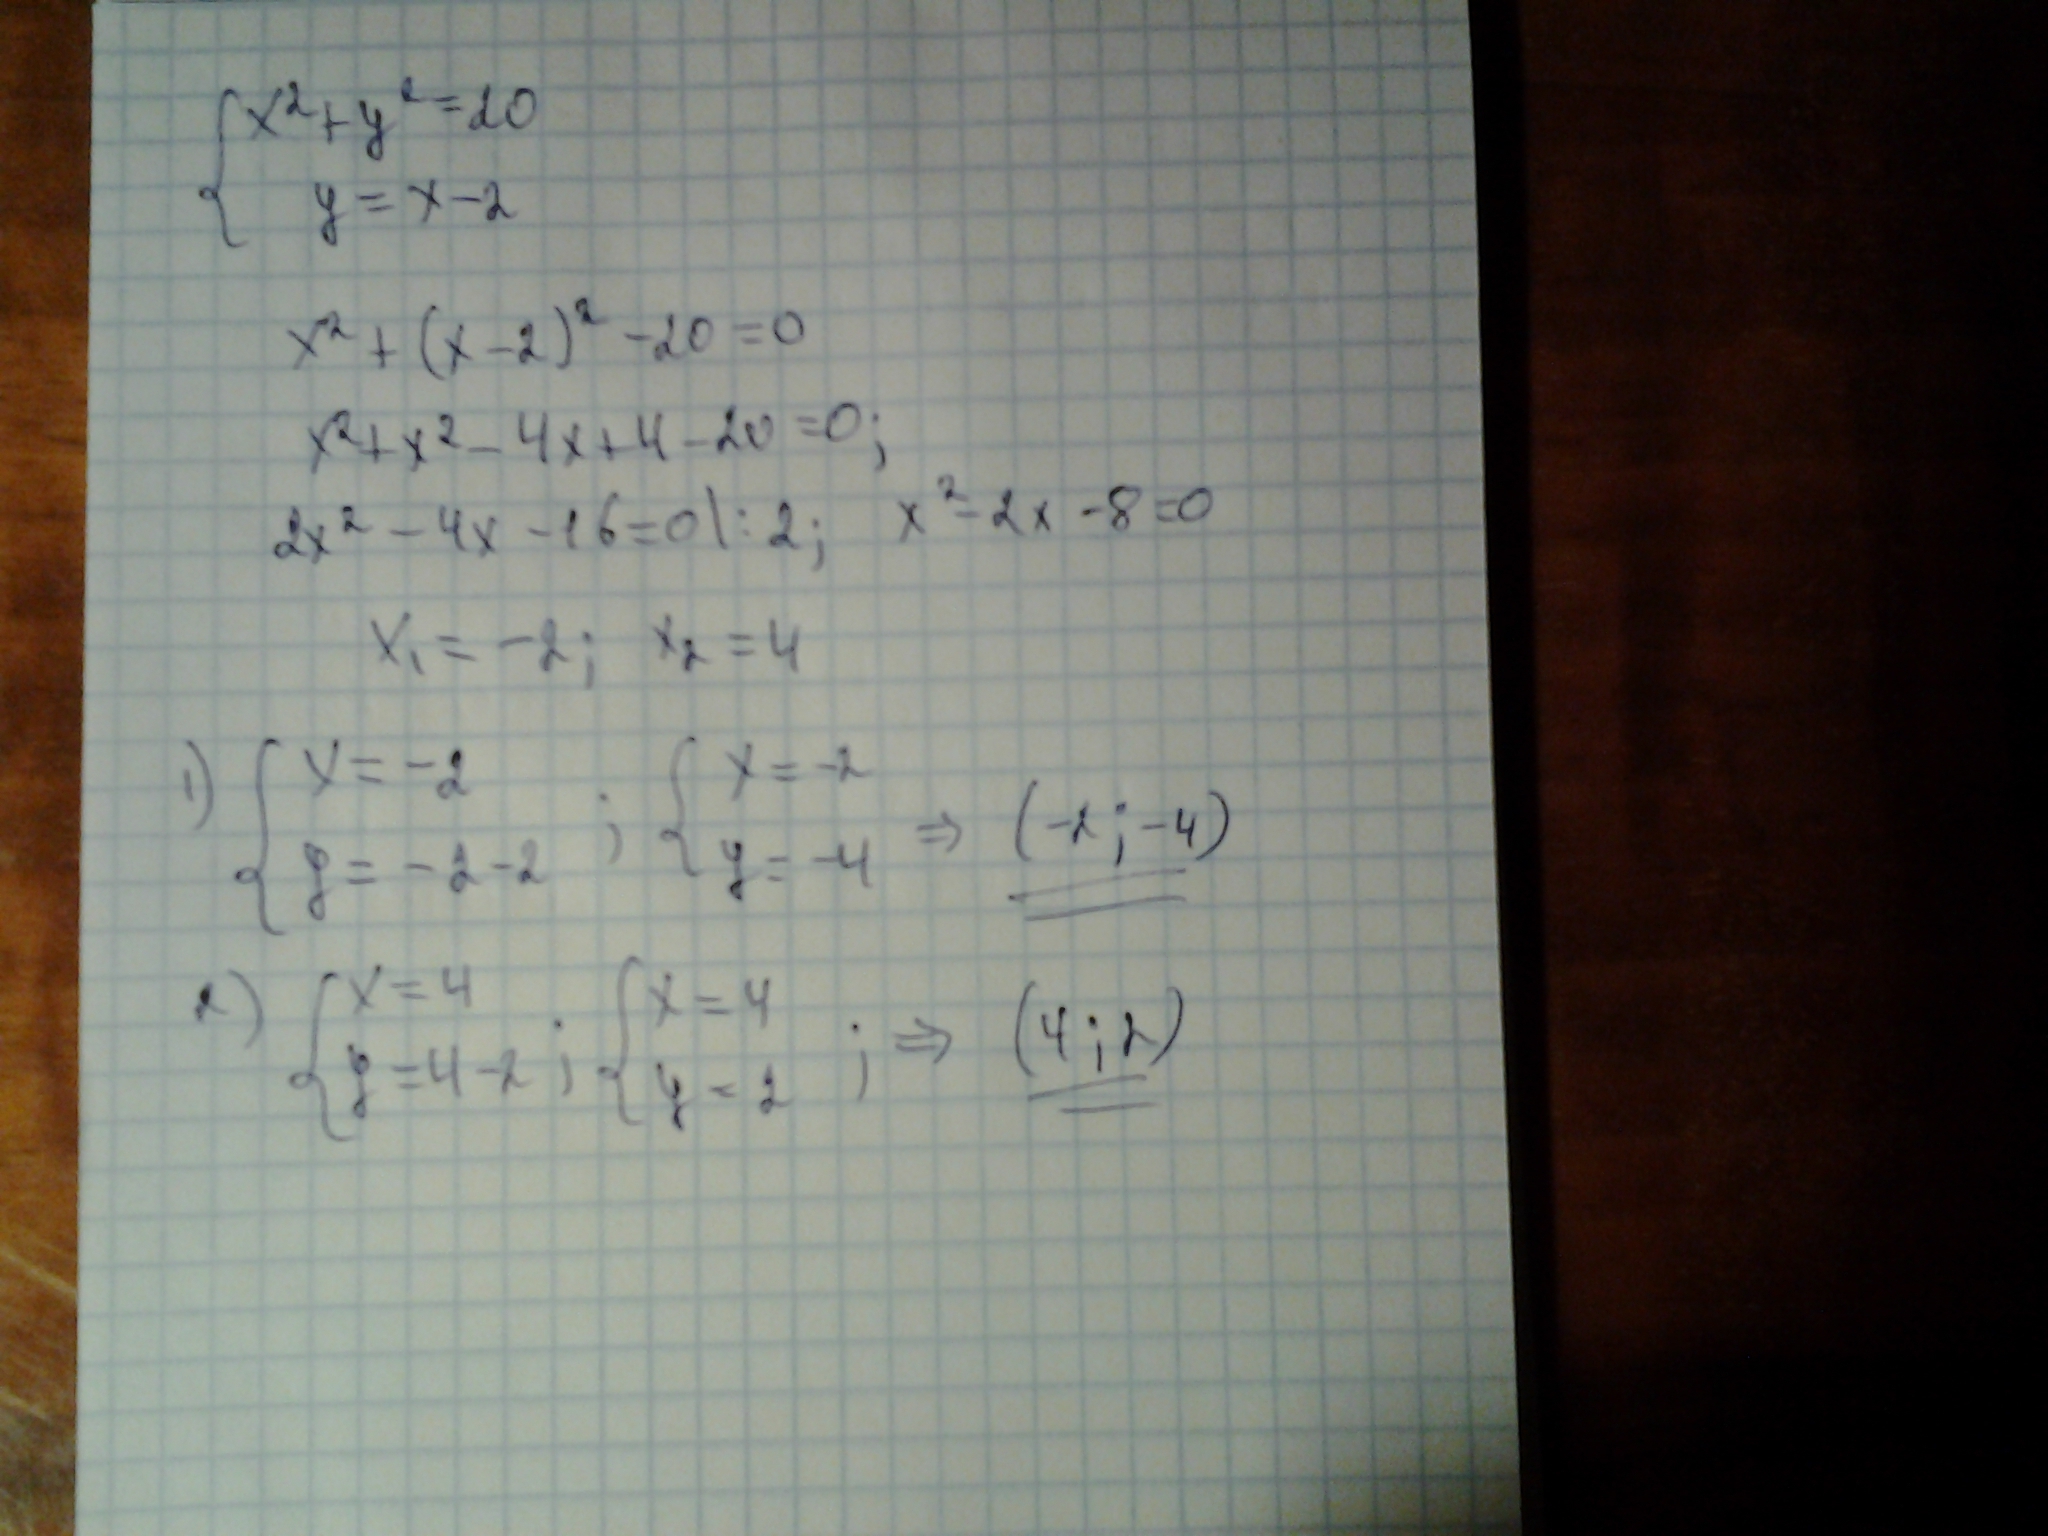 { x² + y² = 20
y = x - 2
x² + (x - 2)² - 20 = 0
x² + x² - 4x + 4 - 20 = 0;
2x² - 4x - 16 = 0 |: 2; x² - 2x - 8 = 0
x₁ = -2; x₂ = 4
1) { x = -2 ; { x = -2
y = -2 - 2 y = -4 ⇒ (-2; -4)
2) { x = 4 ; { x = 4
y = 4 - 2 y = 2 ; ⇒ (4; 2)